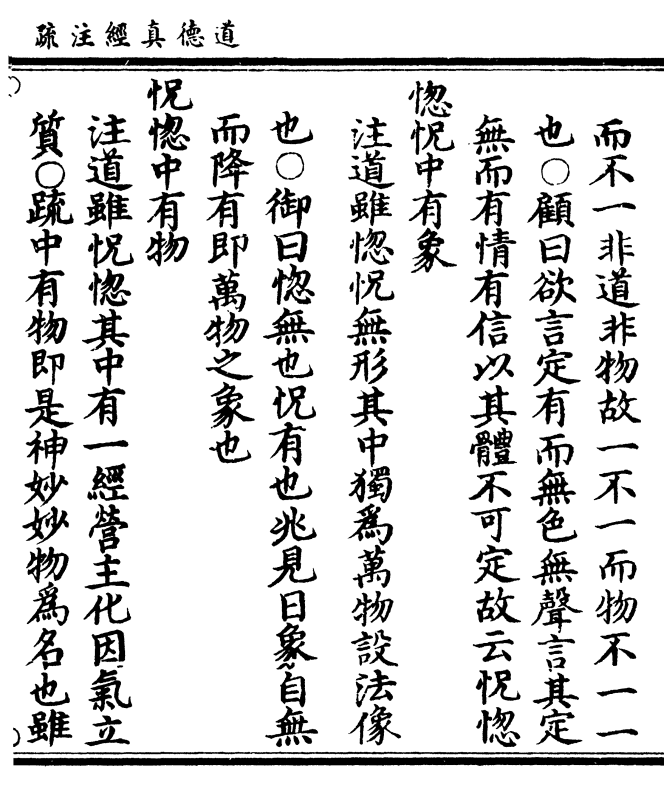 道德真經注疏
而不一非道非物故一不一而物不一一
也○顧曰欲言定有而無色無聲言其定
無而有情有信以其體不可定故云怳惚
惚怳中有象
注道雖惚怳無形其中獨爲萬物設法像
也○御曰惚無也怳有也兆見曰象自無
而降有即萬物之象也
怳惚中有物
注道雖怳惚其中有一經營主化因氣立
質○疏中有物即是神妙妙物爲名也雖